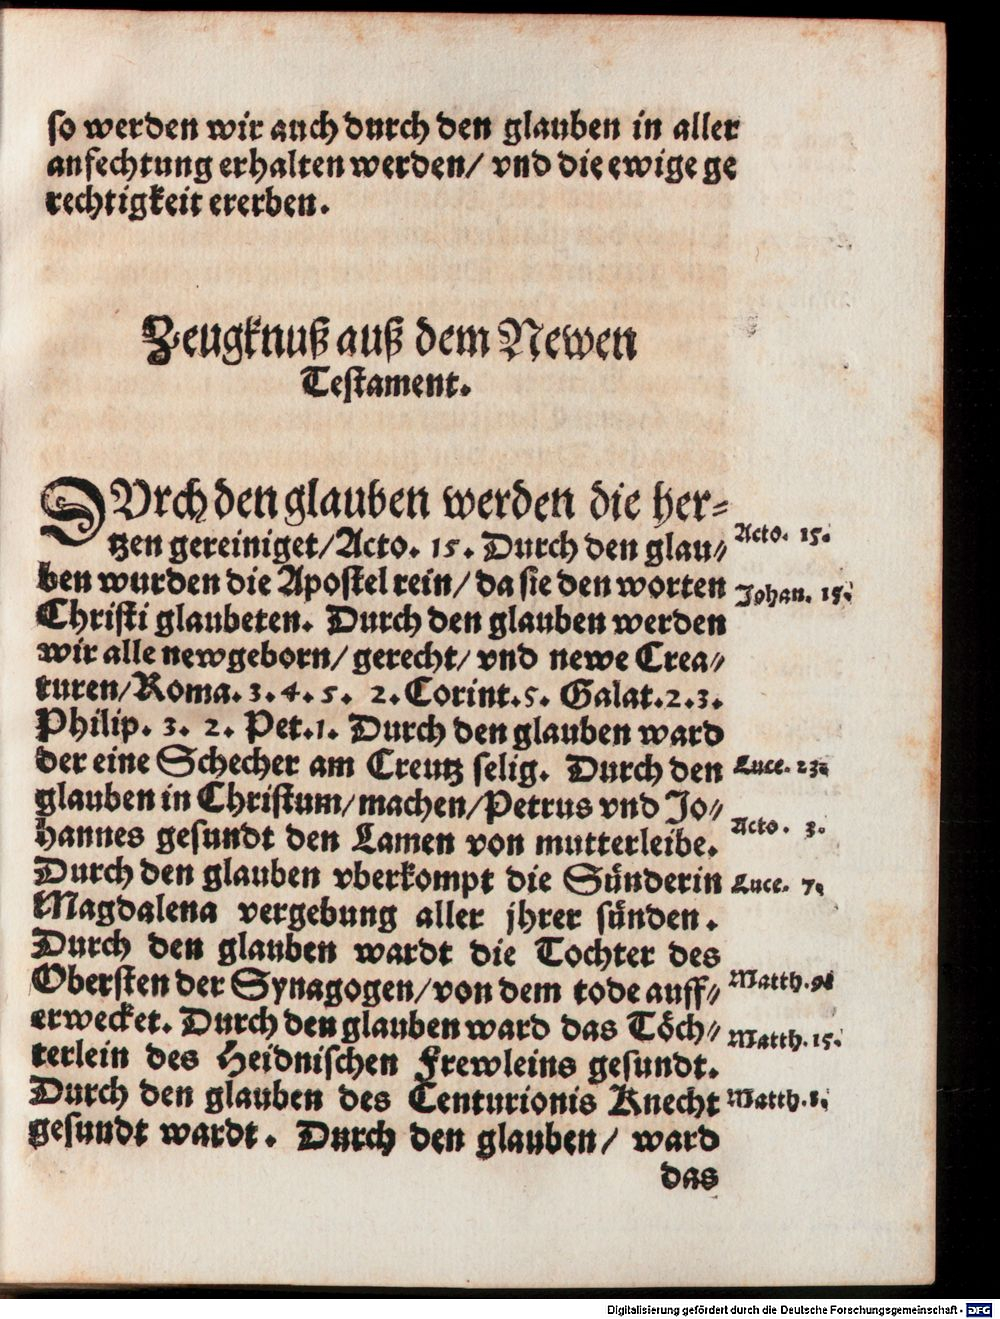 so werden wir auch durch den glauben in aller
anfechtung erhalten werden/ vnd die ewige ge
rechtigkeit ererben.
Zeugknuß auß dem Newen
Testament.
DVrch den glauben werden die her-
tzen gereiniget/Acto. 15. Durch den glau-
ben wurden die Apostel rein/ da sie den worten
Christi glaubeten. Durch den glauben werden
wir alle newgeborn/ gerecht/ vnd newe Crea-
turen/Roma. 3. 4. 5. 2. Corint. 5. Galat. 2. 3.
Philip. 3. 2. Pet. 1. Durch den glauben ward
der eine Schecher am Creutz selig. Durch den
glauben in Christum/machen/Petrus vnd Jo-
hannes gesundt den Lamen von mutterleibe.
Durch den glauben vberkompt die Sünderin
Magdalena vergebung aller jhrer sünden.
Durch den glauben wardt die Tochter des
Obersten der Synagogen/von dem tode auff-
erwecket. Durch den glauben ward das Töch-
terlein des Heidnischen Frewleins gesundt.
Durch den glauben des Centurionis Knecht
gesundt wardt. Durch den glauben/ ward
das
Acto. 15.
Johan. 15.
Luce. 23.
Acto. 3.
Luce. 7.
Matth. 9.
Matth. 15.
Matth. 8.
Digitalisierung gefördert durch die Deutsche Forschungsgemeinschaft - DFG